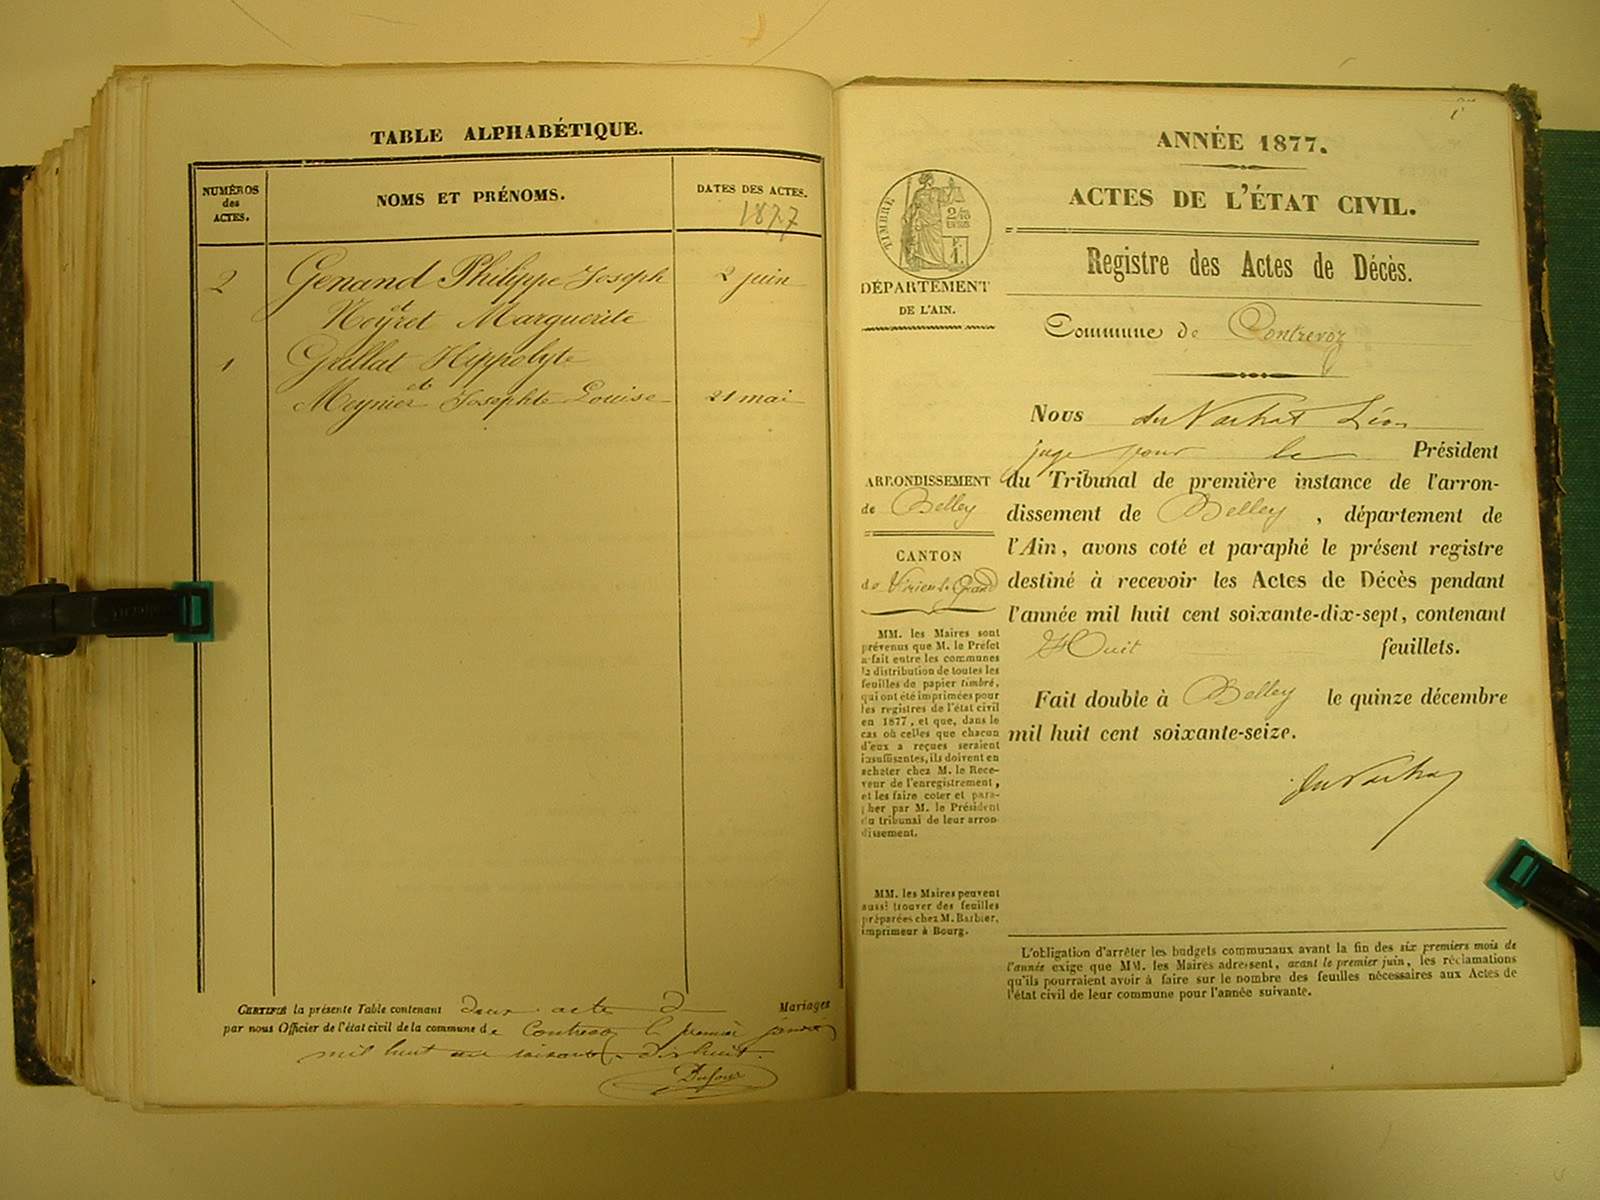 TABLE ALPHABÉTIQUE.
NUMÉROS
des
ACTES.
NOMS ET PRÉNOMS.
DATES DES ACTES.
1877
2 Genand Philippe Joseph 2 juin
et
Neyret Marguerite
1 Grillat Hippolyte
et
Meynier Josephte Louise 21 mai
CERTIFIÉ la présente Table contenant deux actes d Mariages
par nous Officier de l'état civil de la commune de Contrevoz le premier janvier
mil huit cent soixante-dix huit.
Dufour
1r
ANNÉE 1877.
ACTES DE L'ÉTAT CIVIL.
Registre des Actes de Décès.
TIMBRE
2/10
EN SUS
1
DÉPARTEMENT
DE L'AIN.
Commune de Contrevoz
Nous Léon
juge pour le Président
du Tribunal de première instance de l'arron-
dissement de Belley, département de
l'Ain, avons coté et paraphé le présent registre
destiné à recevoir les Actes de Décès pendant
l'année mil huit cent soixante-dix-sept, contenant
Huit feuillets.
Fait double à Belley le quinze décembre
mil huit cent soixante-seize.
ARRONDISSEMENT
de Belley
CANTON
de Virieu-le-Grand
MM. les Maires sont
prévenus que M. le Préfet
a fait entre les communes
la distribution de toutes les
feuilles de papier timbré,
qui ont été imprimées pour
les registres de l'état civil
en 1877, et que, dans le
cas où celles que chacun
d'eux a reçues seraient
insuffisantes, ils doivent en
acheter chez M. le Rece-
veur de l'enregistrement,
et les faire coter et para-
pher par M. le Président
du tribunal de leur arron-
dissement.
MM. les Maires peuvent
aussi trouver des feuilles
préparées chez M. Barbier,
imprimeur à Bourg.
L'obligation d'arrêter les budgets communaux avant la fin des six premiers mois de
l'année exige que MM. les Maires adressent, avant le premier juin, les réclamations
qu'ils pourraient avoir à faire sur le nombre des feuilles nécessaires aux Actes de
l'état civil de leur commune pour l'année suivante.